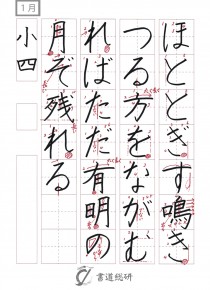 1月
ほととぎす鳴き
つる方をながむ
ればただ有明の
月ぞ残れる
小四
書道総研